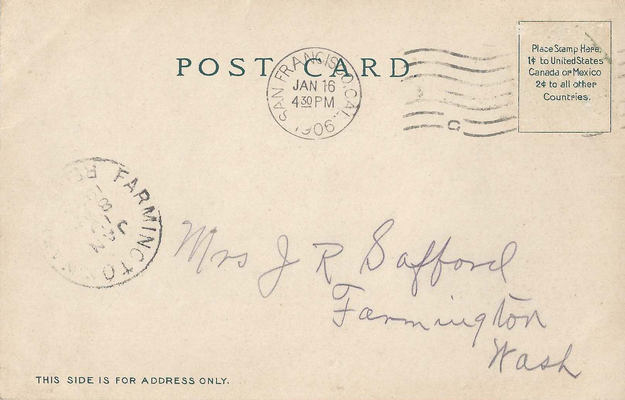 POST CARD
SAN FRANCISCO, CAL.
JAN 16
4 30 PM
1906
Place Stamp Here.
1¢ to United States
Canada or Mexico
2¢ to all other
Countries.
FARMINGTON
Mrs J R Safford
Farmington
Wash
THIS SIDE IS FOR ADDRESS ONLY.